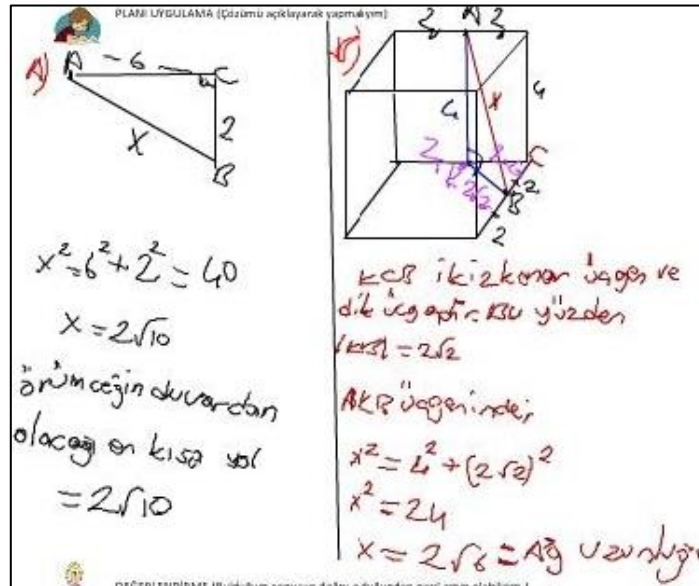 PLANI UYGULAMA (Çözümü açıklayarak yapmalıyım)
A)
A - 6 - C
2
X
B
x² = 6² + 2² = 40
x = 2√10
örümceğin duvardan
alacağı en kısa yol
= 2√10
B)
2 A 2
4
4 x
2 K 2 C
2√2 2
B
2
KCB ikizkenar üçgen ve
dik üçgendir. Bu yüzden
|KB| = 2√2
AKB üçgeninde;
x² = 4² + (2√2)²
x² = 24
x = 2√6 = Ağ uzunluğu